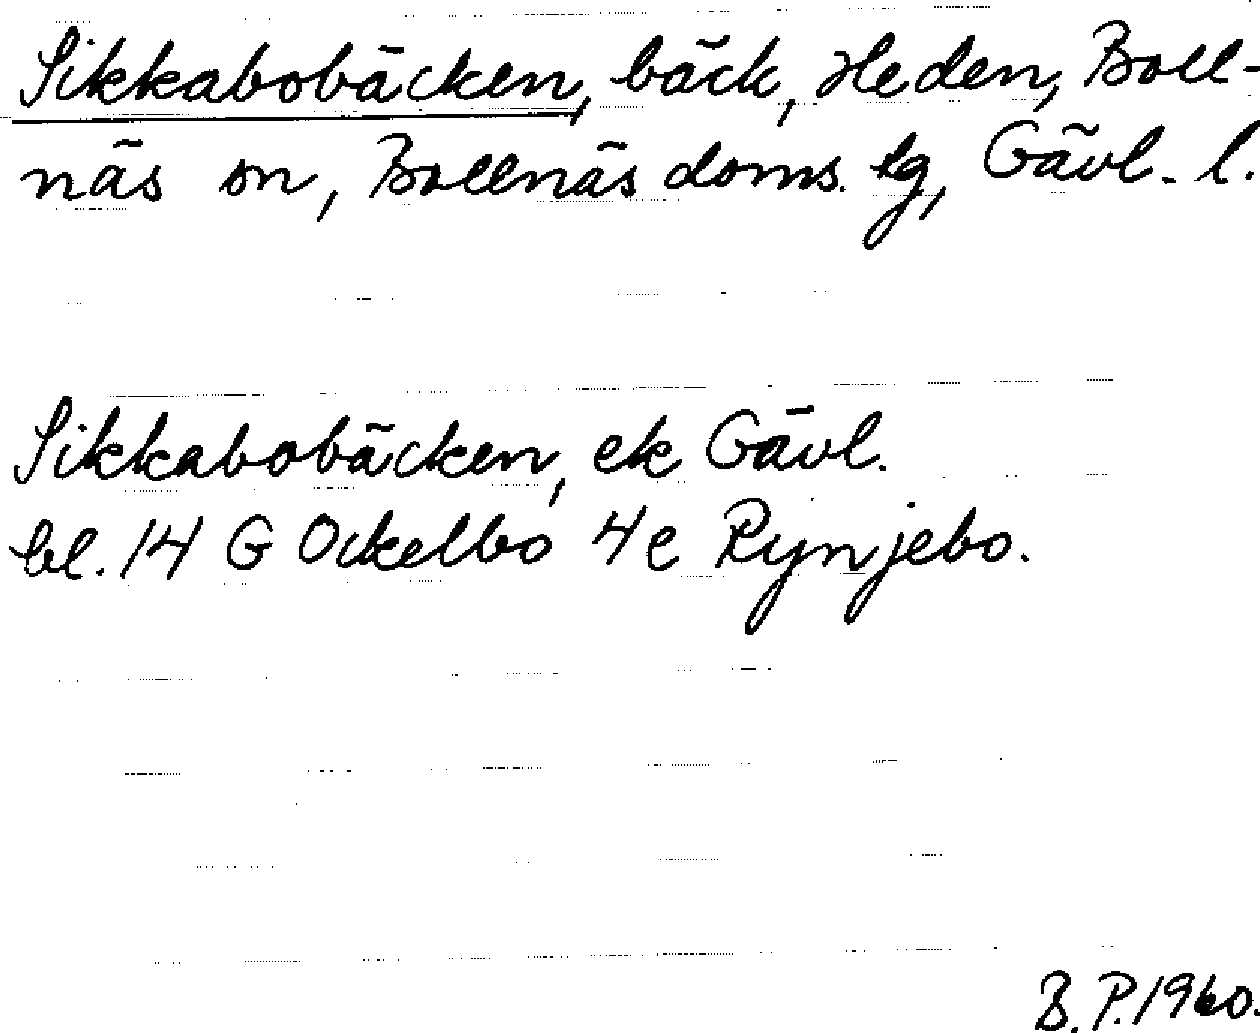 Sikkabobäcken, bäck, Heden, Boll-
näs sn, Bollnäs doms. lg, Gävl. l.
Sikkabobäcken, ek Gävl.
bl. 14 G Ockelbo 4e Rynjebo.
B. P. 1960.